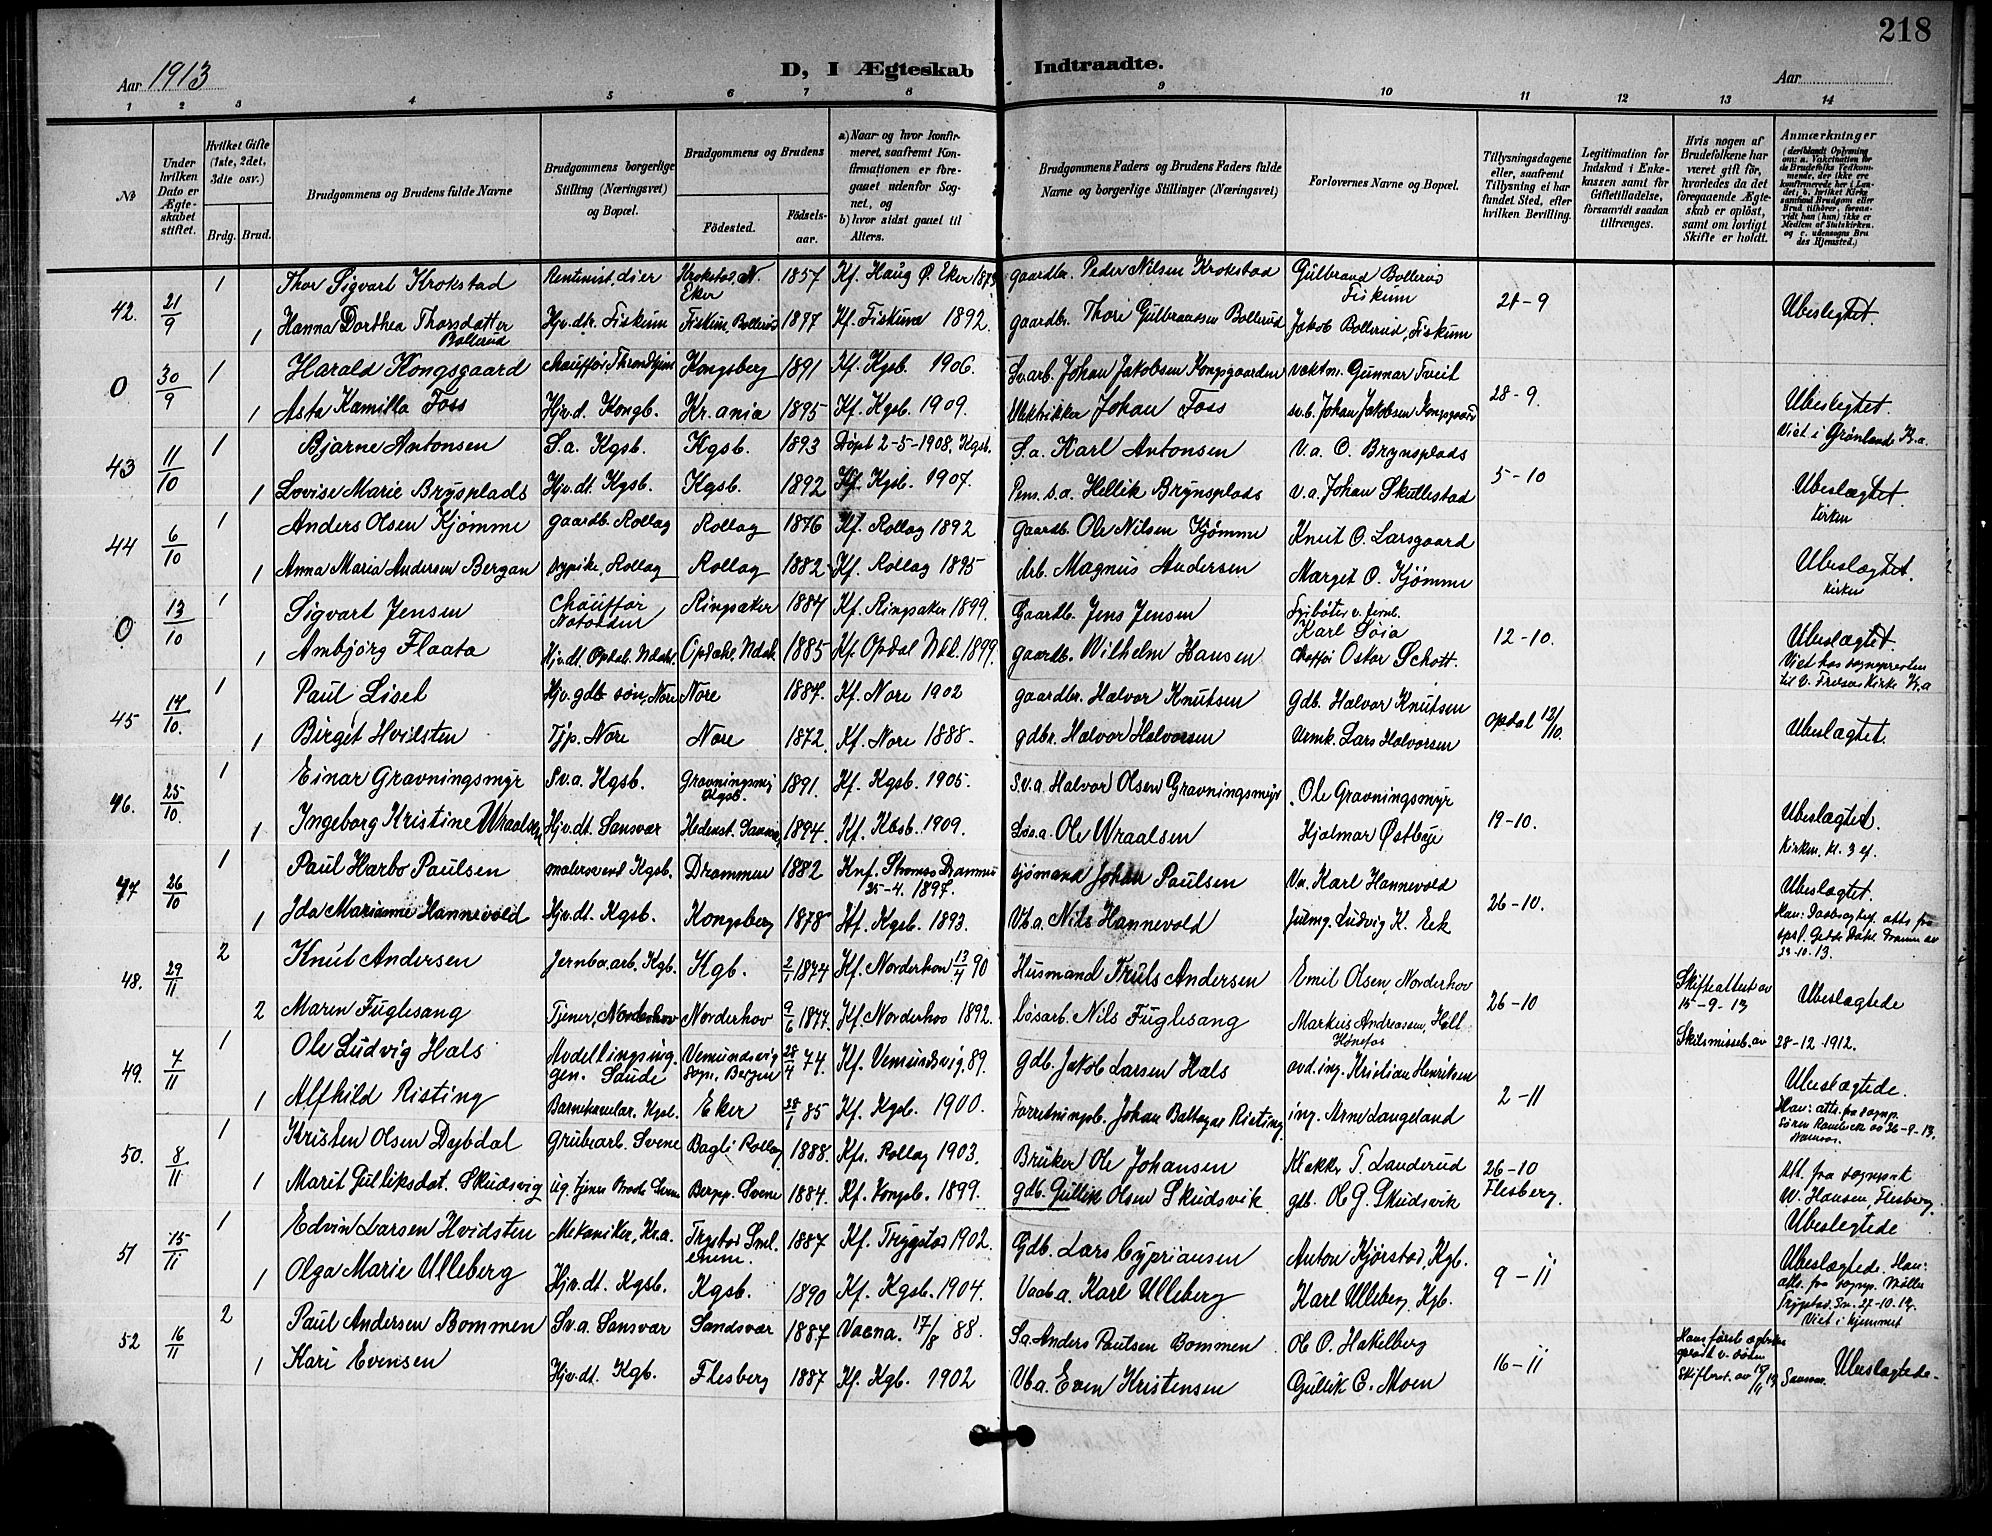 218
Aar 1913
D, I Ægteskab Indtraadte.
Aar
1 2 3 4 5 6 7 8 9 10 11 12 13 14
No
Under hvilken Dato er Ægteskabet stiftet.
Hvilket Gifte (1ste, 2det, 3die osv.)
Brdg. Brud.
Brudgommens og Brudens fulde Navne
Brudgommens borgerlige Stilling (Næringsvei) og Bopæl.
Brudgommens og Brudens
Fødested.
Fødselsaar.
a) Naar og hvor konfirmeret, saafremt Konfirmationen er foregaaet udenfor Sognet, og
b) hvor sidst gaaet til Alters.
Brudgommens Faders og Brudens Faders fulde Navne og borgerlige Stillinger (Næringsvei).
Forlovernes Navne og Bopæl.
Tillysningsdagene eller, saafremt Tillysning ei har fundet Sted, efter hvilken Bevilling.
Legitimation for Indskud i Enkekassen samt for Giftetilladelse, forsaavidt saadan tiltrænges.
Hvis nogen af Brudefolkene har været gift før, hvorledes da det foregaaende Ægteskab er opløst, samt om lovligt Skifte er holdt.
Anmærkninger (deriblandt Oplysning om: a. Vaccination for de Brudefolks Vedkommende, der ikke ere konfirmerede her i Landet; b. hvilket Kirkesamfund Brudgom eller Brud tilhører, forsaavidt han (hun) ikke er Medlem af Statskirken, og c. udensogns Brudes Hjemsted.)
42. 21/9 1 Thor Sigvart Krokstad Rentenist, Eker Krokstad, N. Eker 1857 Kf. Haug Ø. Eker gaardbr. Peder Nilsen Krokstad Gulbrand Bollerud Fiskum 21-9 Ubeslegtet.
1 Hanna Dorthea Thorsdatter Bollerud Hjv. dtr. Fiskum Fiskum, Bollerud 1877 Kf. Fiskum 1892. gaardbr. Thore Gulbrandsen Bollerud Jakob Bollerud, Fiskum
0 30/9 1 Harald Kongsgaard chauffør Throndhjem Kongsberg 1891 Kf. Kgsb. 1906. Sv.arb. Johan Jakobsen Kongsgaarden vektm. Gunnar Tveit 28-9. Ubeslegtet.
1 Asta Kamilla Foss Hjv.d. Kongb. Kr.ania 1895 Kf. Kgsb. 1909. Johan Foss sv.b. Johan Jakobsen Kongsgaard Viet i Grønland Kr.a.
43 11/10 1 Bjarne Antonsen S.a. Kgsb. Kgsb. 1893 Døpt 2-5-1908, Kgsb. S.a. Karl Antonsen V.a. O. Brynsplads 5-10
1 Lovise Marie Brysplads Hjv.dt. Kgsb. Kgsb. 1892 Kf. Kgsb. 1907. Pens. s.a. Hellik Brynsplads v.a. Johan Skullestad Ubeslægtet kirken
44 6/10 1 Anders Olsen Kjømme gaardb. Rollag Rollag 1876 Kf. Rollag 1892 gaardb. Ole Nilsen Kjømme Knut O. Larsgaard
1 Anna Maria Andersen Bergan Rollag Rollag 1882 Kf. Rollag 1895 Arb. Magnus Andersen Marget O. Kjømme Ubeslægtet. kirken
0 13/10 1 Sigvart Jensen Chauffør Notodden Ringsaker 1884 Kf. Ringsaker 1899. Gaardb. Jens Jensen Karl Søia 12-10. Ubeslægtet.
1 Ambjørg Flaata Hjv.dt. Opdal. Ndal. Opdal, Ndal. 1885 Kf. Opdal Ndl. 1899. gaardb. Wilhelm Hansen Oskar Schott. Viet hos sognepresten til V. Kirke Kr.a
45 14/10. 1 Paul Liset Hjv. gdb søn, Nore Nore 1884. Kf. Nore 1902 gaardbr. Halvor Knutsen Gdb. Halvor Knutsen Opdal 12/10.
1 Birget Hvilsten Tjp. Nore Nore 1872. Kf. Nore 1888. gdbr. Halvor Halvorsen Lars Halvorsen Ubeslægtet.
46. 25/10. 1 Einar Gravningsmyr Sv.a. Kgsb. Gravningsmyr Kgsb. 1891. Kf. Kgsb. 1905. S.v.a. Halvor Olsen Gravningsmyr Ole Gravningsmyr 19-10.
1 Ingeborg Kristine Wraalsen Hjv.dt. Sansvær Hedenst. Sansvær 1894. Kf. Kbsb. 1909. Løs.a. Ole Wraalsen Hjalmar Østbye Ubeslægtet. Kirken. kl. 3 ef.
47 26/10 1 Paul Harbo Paulsen malersvend Kgsb. Drammen 1882 Knf. Strømsø Drammen 25-4. 1897. sjømand Johan Paulsen Vm. Karl Hannevold 26-10. Ubeslægtet.
1 Ida Marianne Hannevold Hjv.dt. Kgsb. Kongsberg 1878 Kf. Kgsb. 1893. Vb.a. Nils Hannevold Ludvig K. Eek
48. 29/11 2 Knut Andersen Jernba.arb. Kgb. Kgb. 2/1 1874 Kf. Norderhov 13/4 90 Husmand Truls Andersen Emil Olsen, Norderhov 26-10 Skifteattest av 15-9-13 Ubeslægtede
2 Maren Fuglesang Tjener, Norderhov Norderhov 9/6 1877. Kf. Norderhov 1892. løsarb. Nils Fuglesang Markus Andreassen, Hønefos Skilsmisseb. av 28-12-1912.
49. 7/11 1 Ole Ludvig Hals Saude Vemundsvig 28/4 74 Kf. Vemundsvig 89. gdb. Jakob Larsen Hals avd.ing. Kristian Henriksen 2-11 Ubeslægtede.
1 Alfhild Risting Kgsb. Eker 28/1 85 Kf. Kgsb. 1900. Forretningsb. Johan Baltazar Risting ing. Arne Langeland
50. 8/11 1 Kristen Olsen Dybdal Grubearb. Svene Rollag 1888. Kf. Rollag 1903. Bruker Ole Johansen Klokker T. Landerud 26-10 Flesberg. Att. fra sogneprest W. Hansen, Flesberg.
1 Marit Gulliksdat. Skudsvig Svene Svene 1884. Kf. Kongsb. 1899. gdb. Gullik Olsen Skudsvik gdb. Ole G. Skudsvik Ubeslegtede
51 15/11 1 Edvin Larsen Hvidsten Mekaniker, Kr.a. Trøgstad Smaalenene. 1887 Kf. Trøgstad 1902. Gdb. Lars Cypriansen Anton Kjørstad, Kgb. 9-11
1 Olga Marie Ulleberg Hjv.dt. Kgsb. Kgsb. 1890 Kf. Kgsb. 1904. Karl Ulleberg Karl Ulleberg, Kgb. Ubeslægtede. Viet i hjemmet
52 16/11 2 Paul Andersen Bommen Sv.a. Sansvær Sandsvær 1887 Vacna. 17/8 88. S.a. Anders Paulsen Bommen Ole O. Hakelberg 16-11
1 Kari Evensen Hjv.dt. Kgb. Flesberg 1887 Kf. Kgb. 1902 Vb.a. Even Kristensen Gullik C. Moen Ubeslægtede.